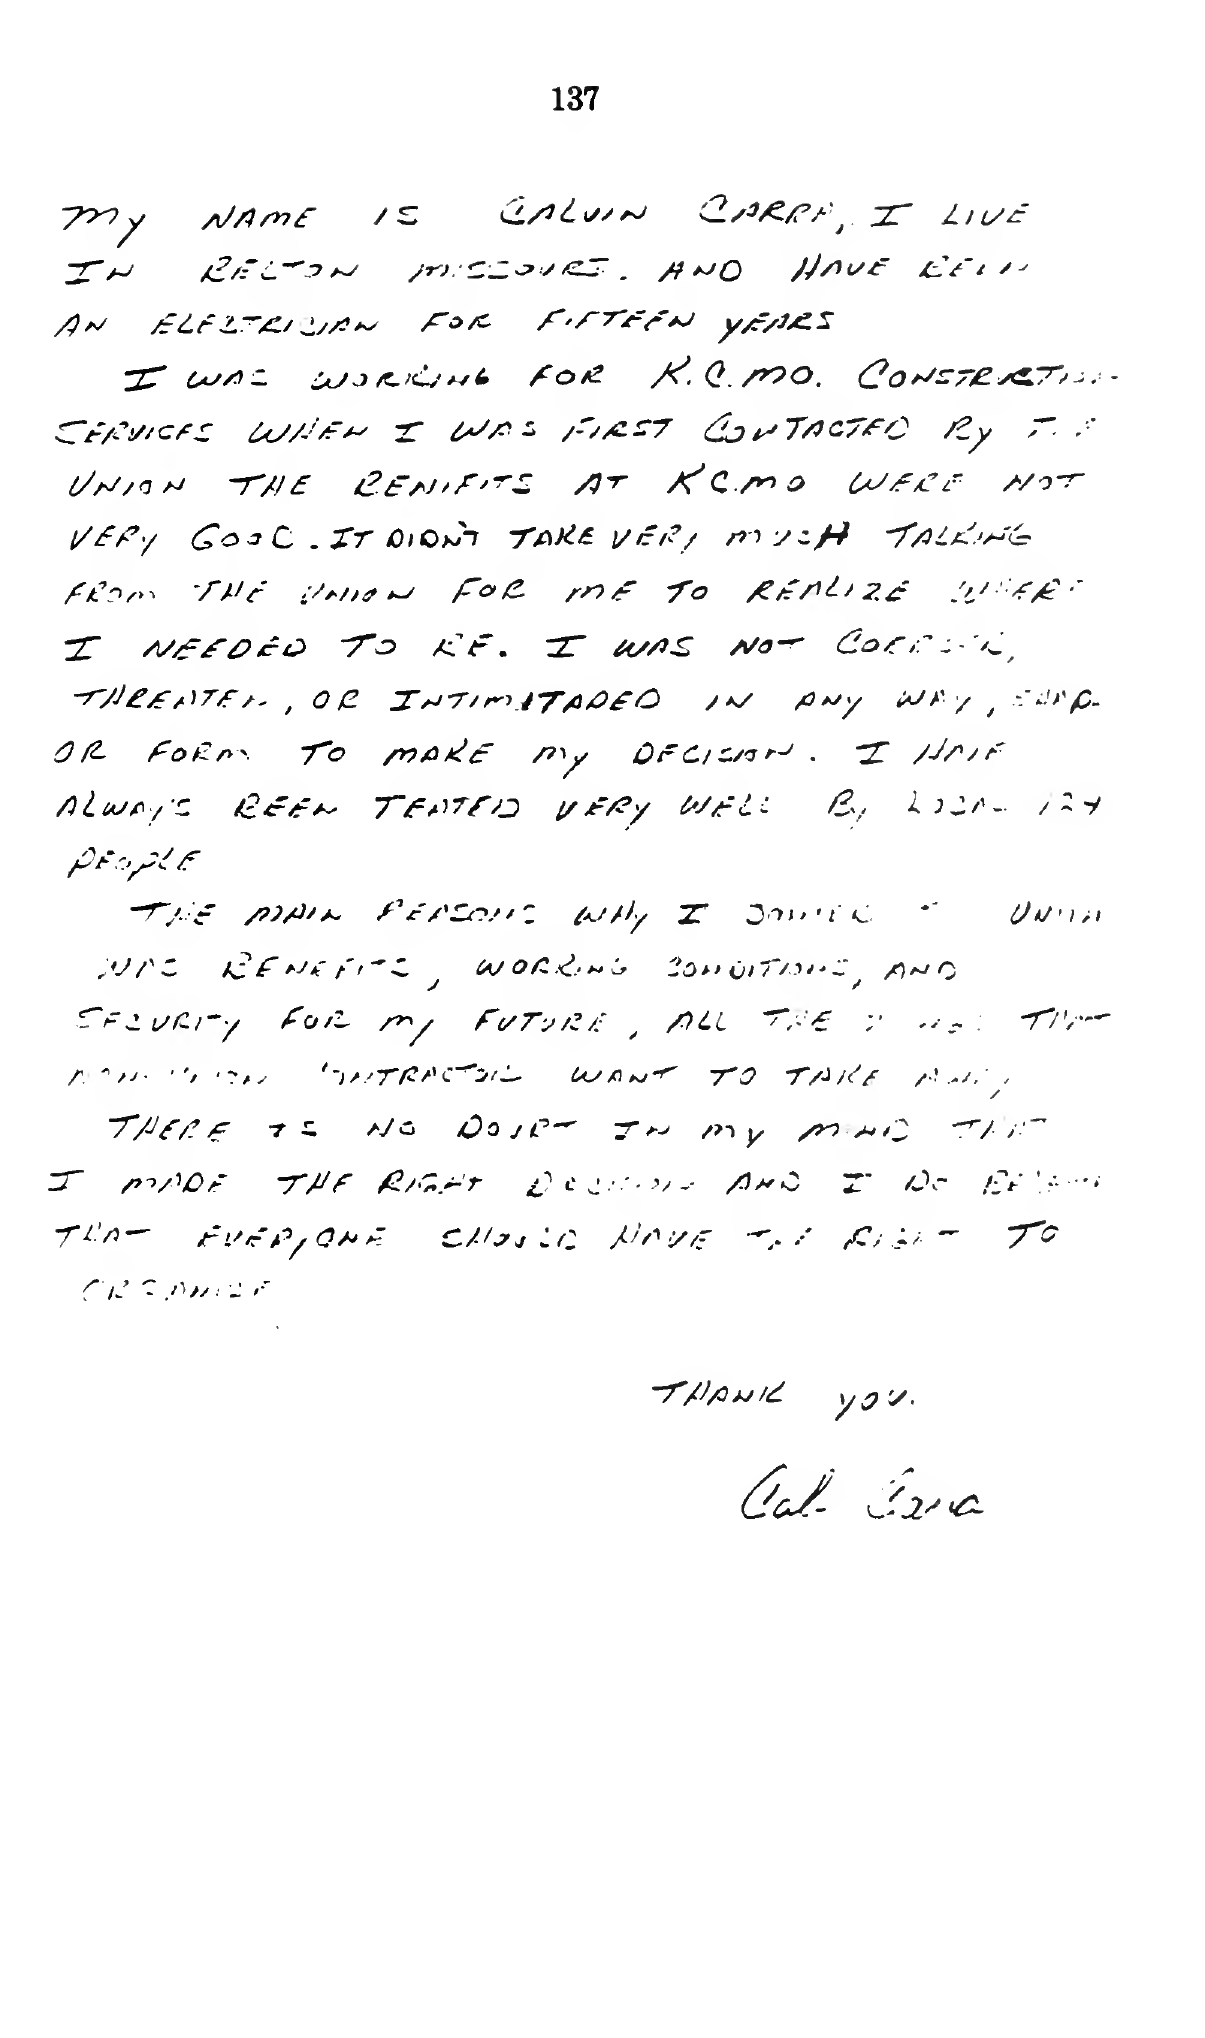 137
MY NAME IS CALVIN CARRA, I LIVE
IN BELTON MISSOURI. AND HAVE BEEN
AN ELECTRICIAN FOR FIFTEEN YEARS
I WAS WORKING FOR K.C.MO. CONSTRUCTION
SERVICES WHEN I WAS FIRST CONTACTED BY THE
UNION THE BENIFITS AT KC.MO WERE NOT
VERY GOOD. IT DIDN'T TAKE VERY MUCH TALKING
FROM THE UNION FOR ME TO REALIZE WHERE
I NEEDED TO BE. I WAS NOT
THREATEN, OR INTIMITADED IN ANY WAY, SHAPE
OR FORM TO MAKE MY DECISION. I HAVE
ALWAYS BEEN TEATED VERY WELL By LOCAL 124
PEOPLE
THE MAIN REASONS WHY I JOINED UNION
WAS BENEFITS, WORKING CONDITIONS, AND
SECURITY FOR MY FUTURE, ALL THE THAT
CONTRACTORS WANT TO TAKE AWAY
THERE IS NO DOUBT IN MY MIND THAT
I MADE THE RIGHT DECISION AND I DO BELIEVE
THAT EVERYONE SHOULD HAVE THE RIGHT TO
ORGANIZE
THANK YOU.
Cal Carra